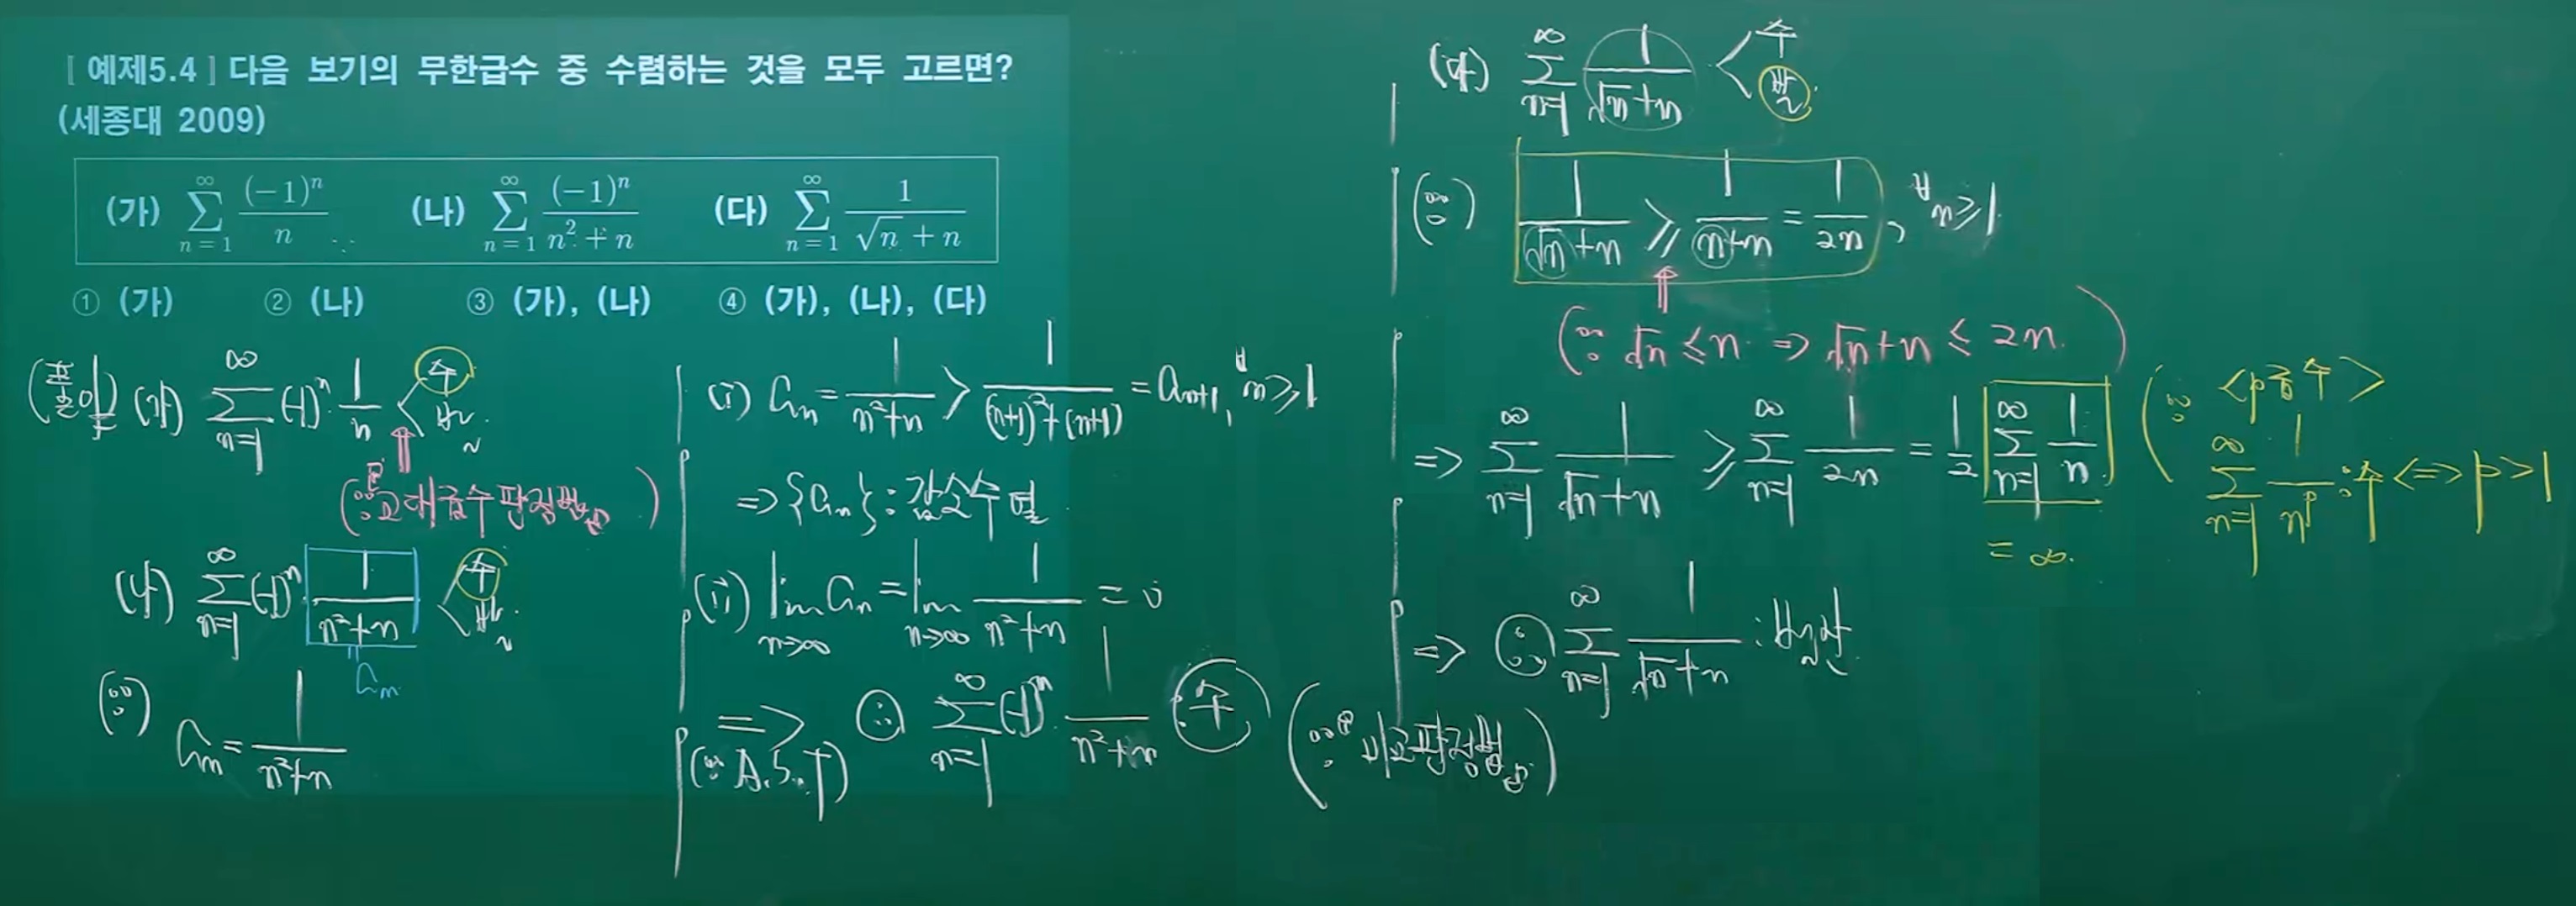 [ 예제5.4 ] 다음 보기의 무한급수 중 수렴하는 것을 모두 고르면?
(세종대 2009)
(가) \sum_{n=1}^{∞} \frac{(-1)^n}{n} (나) \sum_{n=1}^{∞} \frac{(-1)^n}{n^2+n} (다) \sum_{n=1}^{∞} \frac{1}{\sqrt{n}+n}
① (가) ② (나) ③ (가), (나) ④ (가), (나), (다)
(풀이) (가) \sum_{n=1}^{∞} (-1)^n \frac{1}{n} < 수 발
(∵ 교대급수판정법)
(나) \sum_{n=1}^{∞} (-1)^n \frac{1}{n^2+n} < 수 발
a_n
(∵) a_n = \frac{1}{n^2+n}
(i) a_n = \frac{1}{n^2+n} > \frac{1}{(n+1)^2+(n+1)} = a_{n+1}, ∀n ≥ 1
⇒ {a_n} : 감소수열
(ii) \lim_{n→∞} a_n = \lim_{n→∞} \frac{1}{n^2+n} = 0
⇒ (∵ A.S.T) ∴ \sum_{n=1}^{∞} (-1)^n \frac{1}{n^2+n} : 수
(다) \sum_{n=1}^{∞} \frac{1}{\sqrt{n}+n} < 수 발
(∵) \frac{1}{\sqrt{n}+n} ≥ \frac{1}{n+n} = \frac{1}{2n}, ∀n ≥ 1
(∵ \sqrt{n} ≤ n ⇒ \sqrt{n}+n ≤ 2n)
⇒ \sum_{n=1}^{∞} \frac{1}{\sqrt{n}+n} ≥ \sum_{n=1}^{∞} \frac{1}{2n} = \frac{1}{2} \sum_{n=1}^{∞} \frac{1}{n}
= ∞
(∵ <p급수>
\sum_{n=1}^{∞} \frac{1}{n^p} : 수 ⇔ p > 1
⇒ ∴ \sum_{n=1}^{∞} \frac{1}{\sqrt{n}+n} : 발산
(∵ 비교판정법)